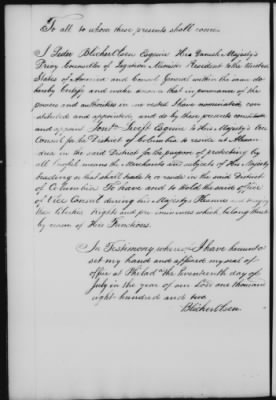 To all to whom these presents shall come
I Peder Blicher Olsen Esquire His Danish Majesty's
Privy Counsellor of Legation Minister Resident to the United
States of America and Consul General within the same do
hereby Certify and make known that in pursuance of the
powers and authorities in me vested I have nominated, con
stituted and appointed, and do by these presents constitute
and appoint Jonan. Swift Esquire to His Majesty's Vice
Consul for the District of Columbia to reside at Alexan
dria in the said District for the purpose of protecting by
all lawful means the Merchants and subjects of His Majesty
trading or that shall trade to or reside in the said District
of Columbia To have and to hold the said office
of Vice Consul during His Majesty's Pleasure and enjoying
the Liberties rights and pre-eminences which belong thereto
by reason of His Functions.
In Testimony whereof I have hereunto
set my hand and affixed my seal of
office at Philada. the seventeenth day of
July in the year of our Lord one thousand
eight hundred and two
Blicherolsen.